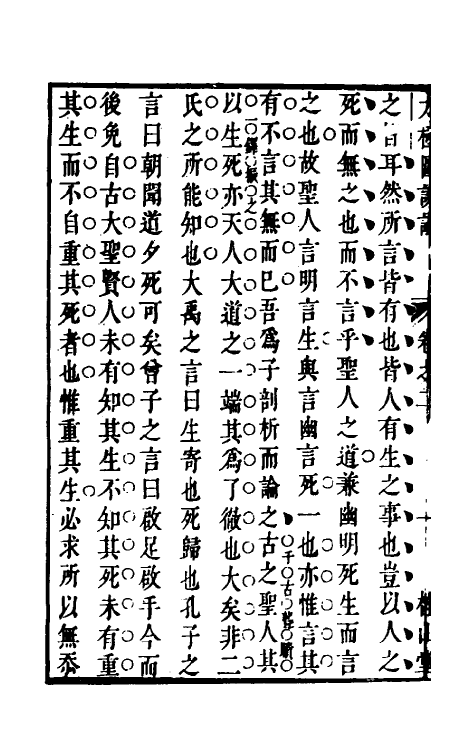 太極圖說論
卷之
之旨耳然所言皆有也皆人有生之事也豈以人之
死而無之也而不言乎聖人之道兼幽明死生而言
之也故聖人言明言生與言幽言死一也亦惟言其
有不言其無而已吾為子剖析而論之古之聖人其
以生死亦天人大道之一端其為了徹也大矣非二
氏之所能知也大禹之言曰生寄也死歸也孔子之
言曰朝聞道夕死可矣曾子之言曰啟足啟手今而
後免自古大聖賢人未有知其生不知其死未有重
其生而不自重其死者也惟重其生必求所以無忝